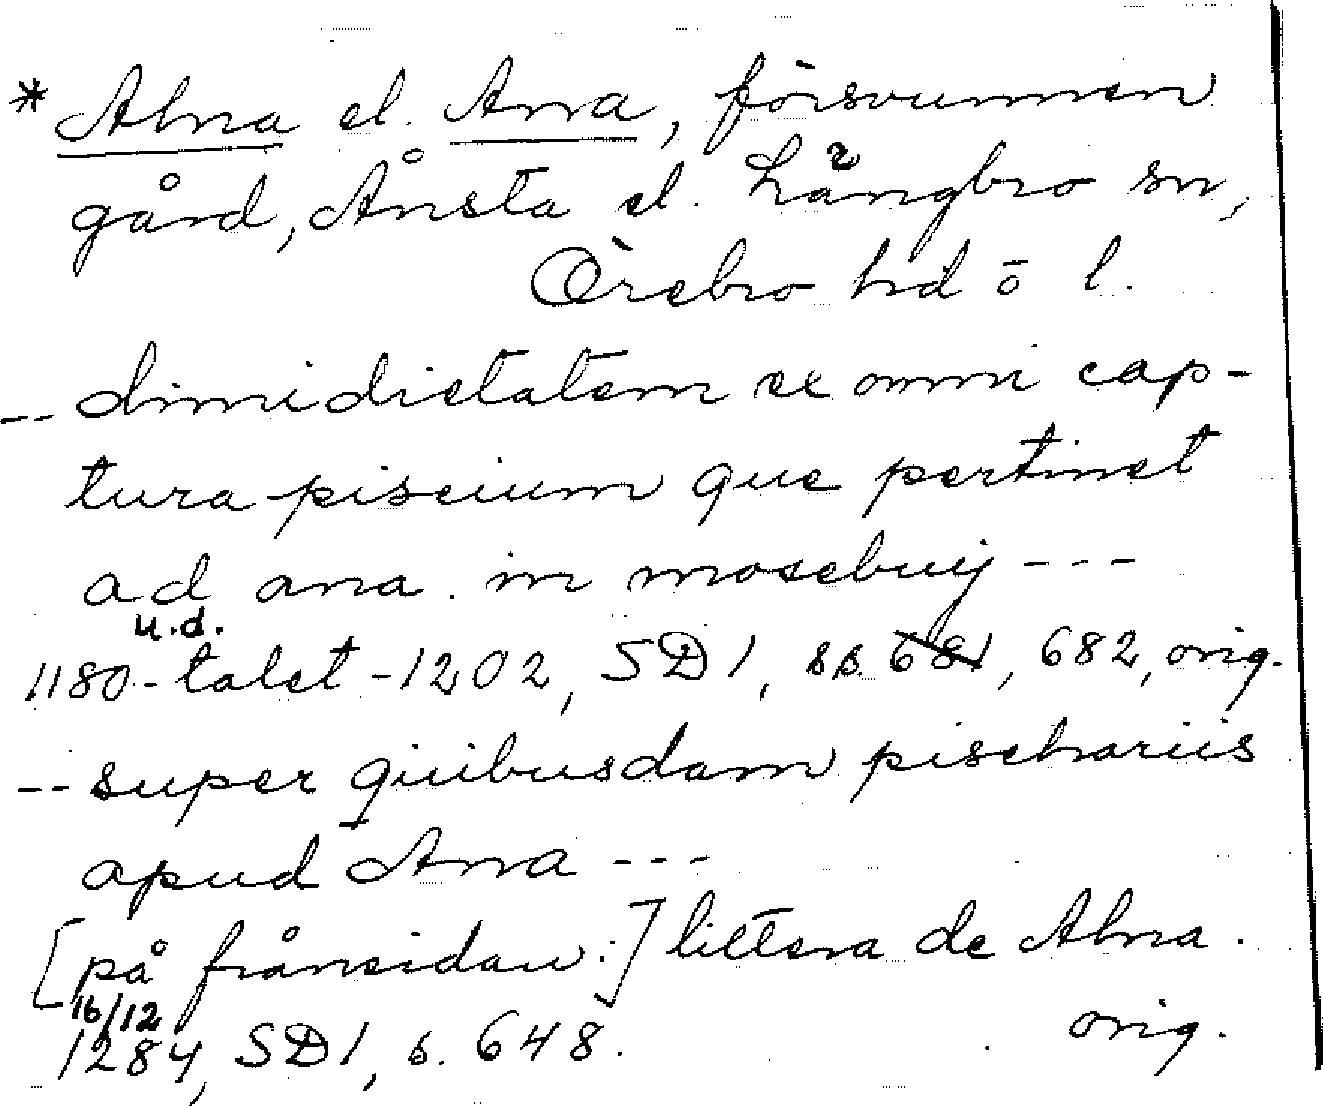 * Alna el. Ana, försvunnen
gård, Ånsta el. Längbro sn,
Örebro hd ö l.
-- dimidietatem ex omni cap-
tura piscium que pertinet
ad ana. in mosebuij ---
u.d.
1180-talet-1202, SD 1, ss. 681, 682, orig.
-- super quibusdam pischariis
apud Ana ---
[på frånsidan:] littera de Alna.
16/12
1284, SD 1, s. 648. orig.